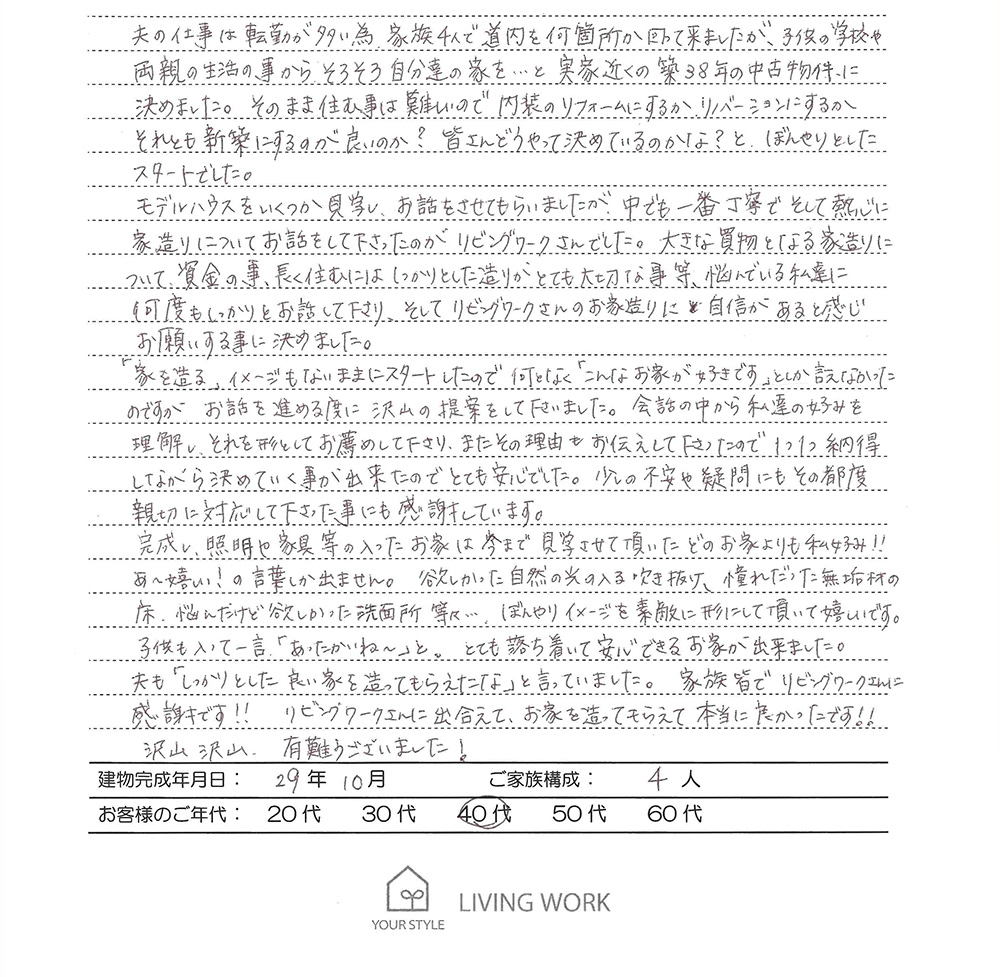 夫の仕事は転勤が多い為、家族4人で道内を何箇所か回って来ましたが、子供の学校や
両親の生活の事からそろそろ自分達の家を…と実家近くの築38年の中古物件に
決めました。そのまま住む事は難しいので内装のリフォームにするか、リバーションにするか
それとも新築にするのが良いのか?皆さんどうやって決めているのかな?と、ぼんやりとした
スタートでした。
モデルハウスをいくつか見学し、お話をさせてもらいましたが、中でも一番丁寧でそして熱心に
家造りについてお話をして下さったのがリビングワークさんでした。大きな買物となる家造りに
ついて、資金の事、長く住むにはしっかりとした造りがとても大切な事等、悩んでいる私達に
何度もしっかりとお話して下さり、そしてリビングワークさんのお家造りに自信があると感じ
お願いする事に決めました。
「家を造る」イメージもないままにスタートしたので何となく「こんなお家が好きです」としか言えなかった
のですが お話を進める度に沢山の提案をして下さいました。会話の中から私達の好みを
理解し、それを形としてお薦めして下さり、またその理由もお伝えして下さったので1つ1つ納得
しながら決めていく事が出来たのでとても安心でした。少しの不安や疑問にもその都度
親切に対応して下さった事にも感謝しています。
完成し、照明や家具等の入ったお家は今まで見学させて頂いたどのお家よりも私好み!!
あ〜嬉しい!の言葉しか出ません。欲しかった自然の光の入る吹き抜け、憧れだった無垢材の
床、悩んだけど欲しかった洗面所等々…、ぼんやりイメージを素敵に形にして頂いて嬉しいです。
子供も入って一言、「あったかいね〜」と。とても落ち着いて安心できるお家が出来ました。
夫も「しっかりとした良い家を造ってもらえたな」と言っていました。家族皆でリビングワークさんに
感謝です!! リビングワークさんに出合えて、お家を造ってもらえて本当に良かったです!!
沢山沢山、有難うございました!
建物完成年月日： 29年 10月 ご家族構成： 4人
お客様のご年代： 20代 30代 40代 50代 60代
YOUR STYLE LIVING WORK